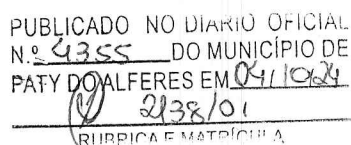 PUBLICADO NO DIARIO OFICIAL
N.º 4355 DO MUNICÍPIO DE
PATY DO ALFERES EM 04/10/24
2138/01
RUBRICA E MATRÍCULA